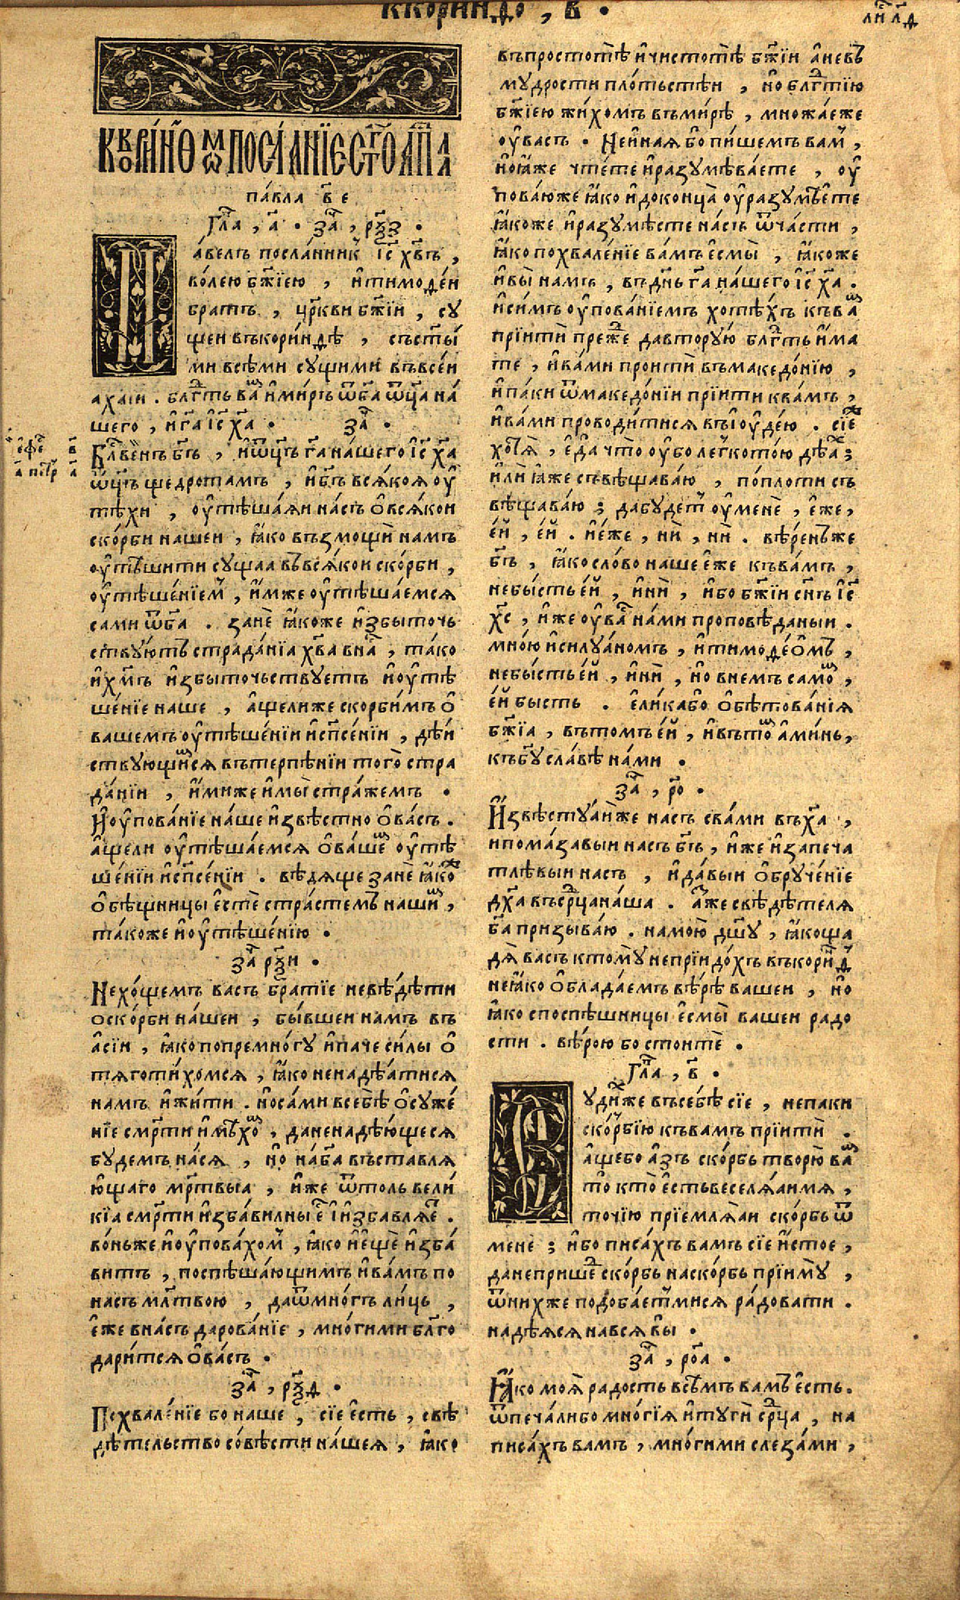 ккориндо , в҃ •
къкори́нѳѡмъ посла́нїе ст҃го ап҃ла
па́вла в҃ е
Гла҃ , а҃ • за҃ , рѯ҃з •
Па́велъ посла́нникъ і҃с х҃въ ,
во́лею бж҃їею , и҆тимоѳе́й
бра́тъ , цр҃кви бж҃їи , су́
щеи въкори́нѳѣ , съст҃ы́
ми всѣ́ми сущими въвсе́и
аха́іи . блг҃ть ва́м и҆ми́ръ ѿб҃а ѿц҃а на́
шего , и҆г҃а і҆с х҃а • за҃ •
Блг҃ве́нъ бг҃ъ , и҆ѿц҃ъ г҃а на́шего і҆с х҃а
ѿц҃ъ щедрота́мъ , и҆бг҃ъ вся́коя оу҆
тѣ́хи , оу҆тѣша́яи на́съ ѡ҆вся́кои
ско́рби нашеи , ꙗ҆ко възмощи́ на́мъ
оу҆тѣ́шити су́щаа въвся́кои ско́рби ,
оу҆тѣше́нїемъ , и҆мже оу҆тѣша́емся
са́ми ѿб҃а . зане́ ꙗ҆́коже и҆збы́точь
ствую́тъ страда́нїа х҃ва вна́съ , та́ко
и҆х҃мъ и҆збы́точьствуетъ и҆оу҆тѣ
ше́нїе наше , а҆́щелиже скорби́мъ ѡ҆
вашемъ оу҆тѣше́нїи и҆сп҃се́нїи , дѣ́и
ствующимся вътерпѣ́нїи того́ стра
да́нїи , и҆́миже и҆мы́ стра́жемъ •
И҆оу҆пова́нїе на́ше и҆звѣ́стно ѡ҆ва́съ .
а҆́щели оу҆тѣша́емся ѡ҆ва́шемъ оу҆тѣ
ше́нїи и҆сп҃се́нїи . вѣ́дяще зане́ ꙗ҆́коже
ѡ҆бѣщницы е҆сте́ стра́стемъ на́шимъ ,
та́коже и҆оу҆тѣше́нїю •
за҃ рѯ҃и •
Нехо́щемъ ва́съ бра́тїе невѣ́дѣти
оско́рби на́шеи , бы́вшеи на́мъ въ
а҆сі́и , ꙗ҆́ко попремно́гу и҆па́че си́лы ѡ҆
тяготи́хомся , ꙗ҆́ко ненадѣ́атися
на́мъ и҆жи́ти . но са́ми всебѣ̀ ѡ҆суже́
нїе см҃рти и҆мѣ́хомъ , даненадѣ́ющеся
бу́демъ на́ся , но на́б҃а въставля́
ющаго мр҃твыа , и҆́же ѿто́ль вели́
кїа см҃рти и҆зба́вилны е҆́сть и҆збавля́етъ .
во́ньже и҆оу҆пова́хомъ , ꙗ҆́ко и҆ещѐ и҆зба́
витъ , поспѣша́ющимъ и҆ва́мъ по
на́съ мл҃твою , даѿмно́гъ ли́ць ,
е҆́же вна́съ дарова́нїе , мно́гими благо
дари́тся ѡ҆ва́съ •
за҃ , рѯ҃д •
Похвале́нїе бо наше , сїе е҆́сть , свѣ
дѣ́тельство со́вѣсти на́шея , ꙗ҆́ко
въпростотѣ̀ и҆чистотѣ̀ бж҃їи а҆невъ
му́дрости пло́тьстѣи , но блг҃тїю
бж҃їею жи́хомъ въми́рѣ , мно́жаеже
оу҆ва́съ • Неи҆на́я бо пи́шемъ ва́м ,
но ꙗ҆́же чте́те и҆разумѣва́ете , оу҆
пова́юже ꙗ҆́ко и҆доконца̀ оу҆разумѣ́ете
ꙗ҆́коже и҆разумѣ́сте на́съ ѿча́сти ,
ꙗ҆́ко похвале́нїе ва́мъ е҆смы̀ , ꙗ҆́коже
и҆вы̀ на́мъ , въдн҃ь г҃а на́шего і҆с х҃а .
и҆си́мъ оу҆пова́нїемъ хотѣ́хъ къва́м
прїитѝ пре́же давтору́ю блг҃ть и҆́ма
те , и҆ва́ми проитѝ въмакедо́нїю ,
и҆па́ки ѿмакедо́нїи прїитѝ ква́мъ ,
и҆ва́ми прово́дитися въі҆оуде́ю . сїе́же
хотя̀ , е҆да̀ что̀ оу҆бо легкото́ю дѣ́ах ;
и҆лѝ ꙗ҆́же съвѣщава́ю , попло́ти съ
вѣщава́ю ; дабу́детъ оу҆менѐ , е҆́же,
е҆́й , е҆́й . и҆е҆́же , нѝ , нѝ . вѣ́ренъже
бг҃ъ , ꙗ҆́ко сло́во наше е҆́же къва́мъ ,
небы́сть е҆́й , и҆нѝ , и҆́бо бж҃їи сн҃ъ і҆с
х҃с , и҆́же оу҆ва́съ на́ми проповѣ́даныи .
мно́ю и҆силуа́номъ , и҆тимоѳе́омъ ,
небы́сть е҆́й , и҆нѝ , но вне́мъ само́мъ ,
е҆́й бы́сть . е҆ли́кабо ѡ҆бѣтова́нїя
бж҃їа , въто́мъ е҆́й , и҆вто́мъ а҆ми́нь,
къбг҃у сла́вѣ на́ми •
за҃ , ро҃ •
И҆звѣ́стуаиже на́съ сва́ми въх҃а ,
и҆пома́завыи на́съ бг҃ъ , и҆́же и҆запеча
тлѣ́выи на́съ , и҆да́выи ѡ҆бруче́нїе
дх҃а въсрц҃а на́ша . а҆́зже свѣдѣ́теля
б҃а призыва́ю . намою̀ дш҃у , ꙗ҆́ко ща
дя̀ ва́съ ктому̀ непрїидо́хъ въкори́нѳъ
неꙗ҆́ко ѡ҆блада́емъ вѣ́рѣ вашеи , но
ꙗ҆́ко споспѣ́шницы е҆смы̀ вашеи радо
сти . вѣ́рою бо стоитѐ •
Гла҃ , в҃ •
Суди́хже всебѣ̀ сїе , непаки
ско́рбїю къва́мъ прїитѝ .
а҆́щебо а҆́зъ ско́рбь творю̀ ва́м
то кто̀ е҆́сть веселя́аимя ,
то́чїю прїемля́аи ско́рбь ѿ
менѐ ; и҆́бо писа́хъ ва́мъ сїе и҆́стое ,
данеприше́дъ ско́рбь наско́рбь прїиму̀ ,
ѿни́хже подоба́етъмися ра́довати .
надѣ́яся нався́ вы •
за҃ , роа҃ •
Ꙗ҆́ко моя̀ ра́дость всѣ́мъ ва́мъ е҆́сть .
ѿпеча́либо мно́гїя и҆тугѝ ср҃ца , на
писа́хъ ва́мъ , мно́гими слеза́ми ,